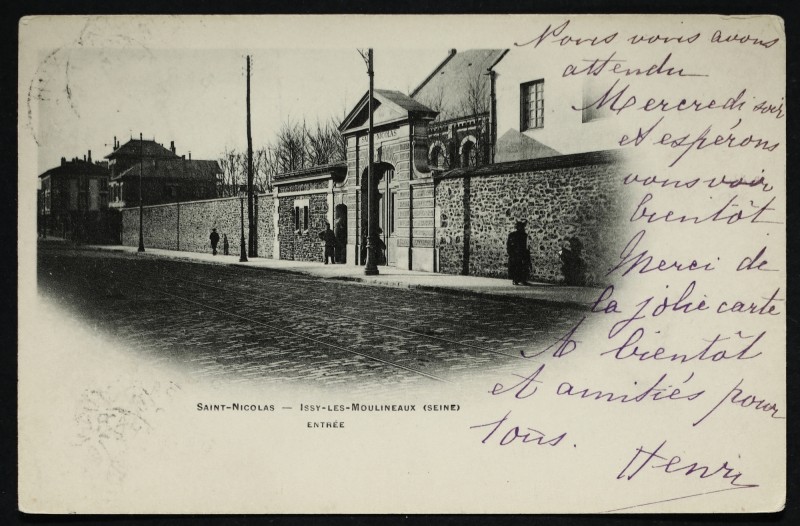 Nous vous avons
attendu
Mercredi soir
et espérons
vous voir
bientôt
Merci de
la jolie carte
A bientôt
et amitiés pour
tous.
Henri
NICOLAS
SAINT-NICOLAS — ISSY-LES-MOULINEAUX (SEINE)
ENTRÉE